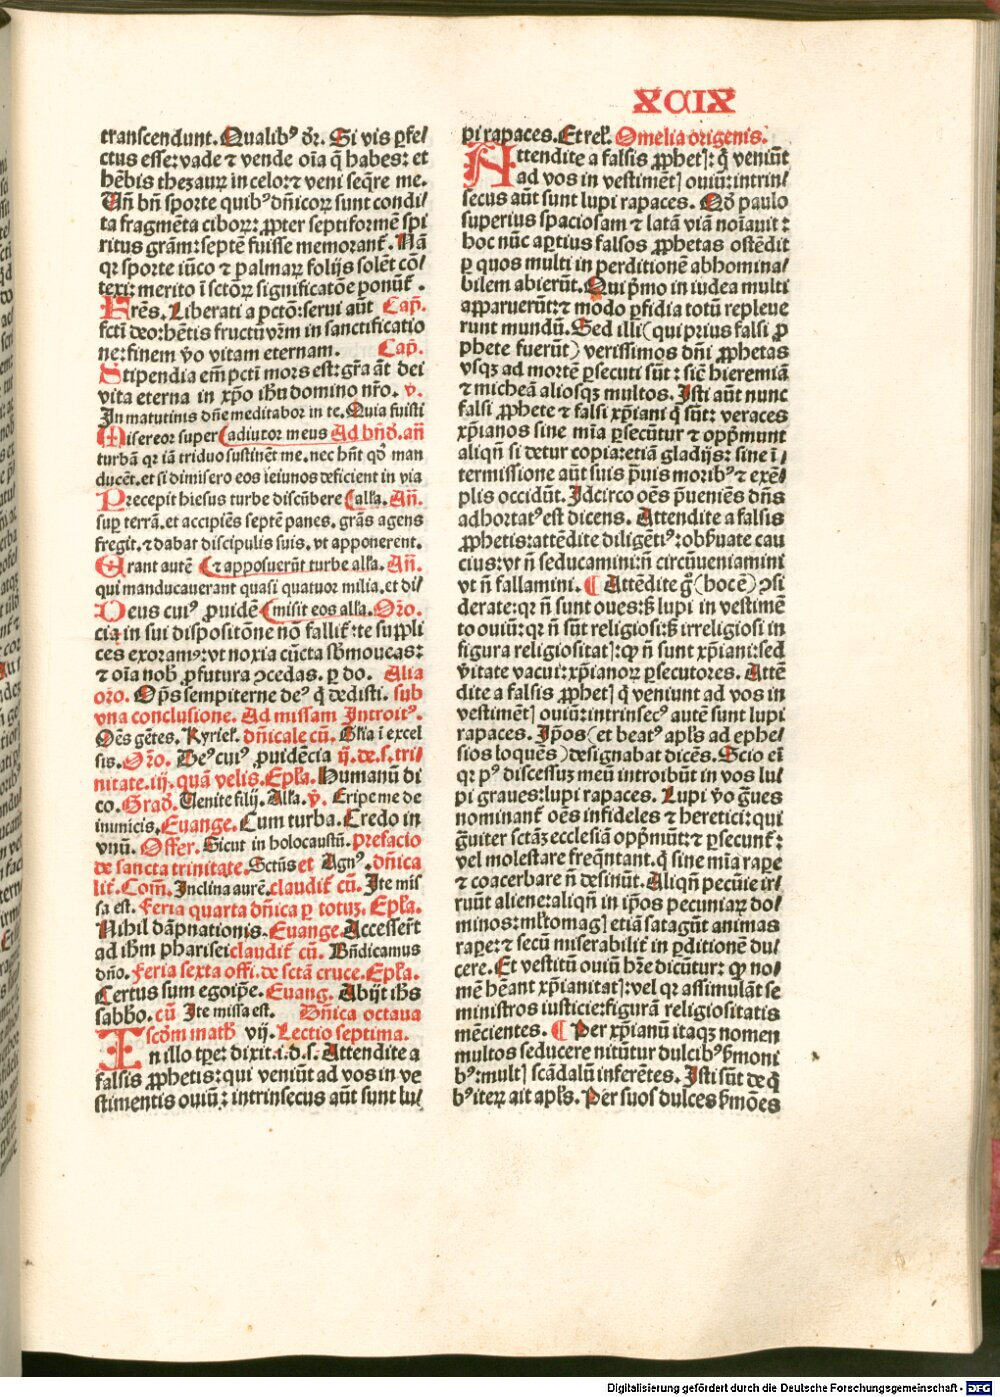 XCIX
transcendunt. Qualibꝰ dr̄. Si vis ꝑfe/
ctus esse: vade ⁊ vende oīa q̄ habes: et
hēbis thezauꝝ in celo: ⁊ veni seq̄re me.
Uñ bñ sporte quibꝰ dñicoꝝ sunt condi/
ta fragmēta ciboꝝ: ꝓpter septiformē spi
ritus grām: septē fuisse memorant̄. Nā
qꝛ sporte iūco ⁊ palmaꝝ folijs solēt cō/
texi: merito ī sctōꝝ significatōe ponūt̄.
Frēs. Liberati a pctō: serui aūt Cap̄.
fcti deo: hētis fructū vr̄m in sanctificatio
ne: finem ṽo vitam eternam. Cap̄.
Stipendia em̄ pcti mors est: gr̄a āt dei
vita eterna in xp̄o ihū domino nr̄o. v̄.
In matutinis dñe meditabor in te. Quia fuisti
Misereor super (adiutor meus Ad bñd̄. añ
turbā qꝛ iā triduo sustinēt me. nec hñt qd̄ man
ducēt. et si dimisero eos ieiunos deficient in via
Precepit hiesus turbe discūbere (alła. Añ.
suꝑ terrā. et accipiēs septē panes. grās agens
fregit. ⁊ dabat discipulis suis. vt apponerent.
Erant autē (⁊ apposuerūt turbe alła. Añ.
qui manducauerant quasi quatuor milia. et di/
Deus cuiꝰ ꝓuidē (misit eos alla. Oro.
cia in sui dispositōne nō fallit̄: te suppli
ces exoramꝰ: vt noxia cūcta sb̄moueas:
⁊ oīa nob̄ ꝓfutura ꝯcedas. ꝑ do. Alia
oro. Oṗs sempiterne deꝰ q̄ dedisti. sub
vna conclusione. Ad missam Introitꝰ.
Oēs gētes. Kyriel. dñicale cū. Gl̄ia ī excel
sis. Oro. Deꝰ cuiꝰ ꝓuidēcia ij. de. s. tri/
nitate. iij. quā velis. Epła. Humanū di
co. Grad̄. Uenite filij. Alła. v̄. Eripe me de
inimicis. Euange. Cum turba. Credo in
vnū. Offer. Sicut in holocaustū. prefacio
de sancta trinitate. Sctūs et Agnꝰ. dñica
lit̄. Com̄. Inclina aurē. claudit̄ cū. Ite mis
sa est. Feria quarta dñica ꝑ totuꝫ. Epła.
Nihil dāpnationis. Euange. Accesser̄t
ad ihm̄ pharisei claudit̄ cū. Bñdicamus
dño. Feria sexta offi. de sctā cruce. Epła.
Certus sum ego ip̄e. Euang. Abijt ihs
sabbo. cū Ite missa est. Dñica octaua
scdm math̄ vij. Lectio septima.
In illo tpe: dixit. i. d. s. Attendite a
falsis ꝓphetis: qui veniūt ad vos in ve
stimentis ouiū: intrinsecus aūt sunt lu/
pi rapaces. Et reł. Omelia origenis.
Attendite a falsis ꝓphet]: q̄ veniūt
ad vos in vestimēt] ouiū: intrin/
secus aūt sunt lupi rapaces. Qd̄ paulo
superius spaciosam ⁊ latā viā noīauit:
hoc nūc aꝑtius falsos ꝓphetas ostēdit
ꝑ quos multi in perditionē abhomina/
bilem abierūt. Qui p̄mo in iudea multi
apparuerūt: ⁊ modo ꝑfidia totū repleue
runt mundū. Sed illi (qui prius falsi ꝓ
phete fuerūt) verissimos dñi ꝓphetas
vsqꝫ ad mortē ꝑsecuti sūt: sic̄ hieremiā
⁊ micheā aliosqꝫ multos. Isti aūt nunc
falsi ꝓphete ⁊ falsi xp̄iani q̄ sūt: veraces
xp̄ianos sine mīa ꝑsecūtur ⁊ opp̄munt
aliqñ si detur copia: etiā gladijs: sine ī/
termissione aūt suis p̄uis moribꝰ ⁊ exē/
plis occidūt. Idcirco oēs p̄ueniēs dñs
adhortatꝰ est dicens. Attendite a falsis
ꝓphetis: attēdite diligētiꝰ: obß̄uate cau
cius: vt n̄ seducamini: n̄ circūueniamini
vt n̄ fallamini. ¶ Attēdite g̊ (hoc ē) ꝯsi
derate: qꝛ n̄ sunt oues: ß lupi in vestimē
to ouiū: qꝛ n̄ sūt religiosi: ß irreligiosi in
figura religiositat]: ꝙ n̄ sunt xp̄iani: sed
v̄itate vacui: xp̄ianoꝝ ꝑsecutores. Attē
dite a falsis ꝓphet] q̄ veniunt ad vos in
vestimēt] ouiū: intrinsecꝰ autē sunt lupi
rapaces. Ip̄os (et beatꝰ apl̄s ad ephe
sios loquēs) designabat dicēs. Scio eī
qꝛ pꝰ discessuꝫ meū introibūt in vos lu/
pi graues: lupi rapaces. Lupi ṽo g̃ues
nominant̄ oēs infideles ⁊ heretici: qui
g̃uiter sctāꝫ ecclesiā opp̄mūt: ⁊ ꝑsecunt̄:
vel molestare freq̄ntant. q̄ sine mīa raꝑe
⁊ coacerbare n̄ desinūt. Aliqñ pecūie ir/
ruūt aliene: aliqñ in ip̄os pecuniaꝝ do/
minos: mł̄tomag] etiā satagūt animas
raꝑe: ⁊ secū miserabilit̄ in ꝑditionē du/
cere. Et vestitū ouiū hr̄e dicūtur: ꝙ no/
mē hēant xp̄ianitat]: vel qꝛ assimulāt se
ministros iusticie: figurā religiositatis
mēcientes. ¶ Per xp̄ianū itaqꝫ nomen
multos seducere nitūtur dulcibꝰ ß̄moni
bꝰ: mult] scādalū inferētes. Isti sūt de q̄
bꝰ iteꝝ ait apl̄s. Per suos dulces ß̄mōes
Digitalisierung gefördert durch die Deutsche Forschungsgemeinschaft - DFG